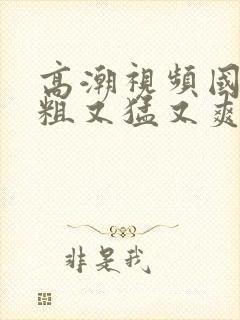 高潮視頻國
粗又猛又爽
非是我